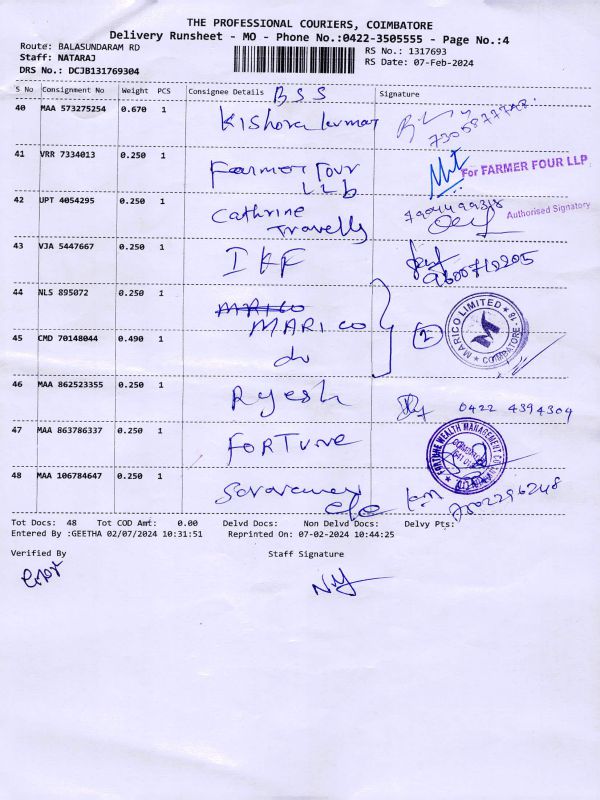 THE PROFESSIONAL COURIERS, COIMBATORE
Delivery Runsheet - MO - Phone No.:0422-3505555 - Page No.:4
Route: BALASUNDARAM RD
RS No.: 1317693
Staff: NATARAJ
RS Date: 07-Feb-2024
DRS No.: DCJB131769304
S No Consignment No Weight PCS Consignee Details BSS Signature
40 MAA 573275254 0.670 1 Kishora kumar
41 VRR 7334013 0.250 1 Farmer Four
LLb
For FARMER FOUR LLP
Authorised Signatory
42 UPT 4054295 0.250 1 Cathrine
Travells
43 VJA 5447667 0.250 1 IKF 9600712205
44 NLS 895072 0.250 1 MARICO
MARICO
2
MARICO LIMITED * 18
COIMBATORE
45 CMD 70148044 0.490 1 do
46 MAA 862523355 0.250 1 Rajesh 0422 4394304
47 MAA 863786337 0.250 1 FORTUNE
FORTUNE WEALTH MANAGEMENT CO
48 MAA 106784647 0.250 1
Tot Docs: 48 Tot COD Amt: 0.00 Delvd Docs: Non Delvd Docs: Delvy Pts:
Entered By :GEETHA 02/07/2024 10:31:51 Reprinted On: 07-02-2024 10:44:25
Verified By Staff Signature